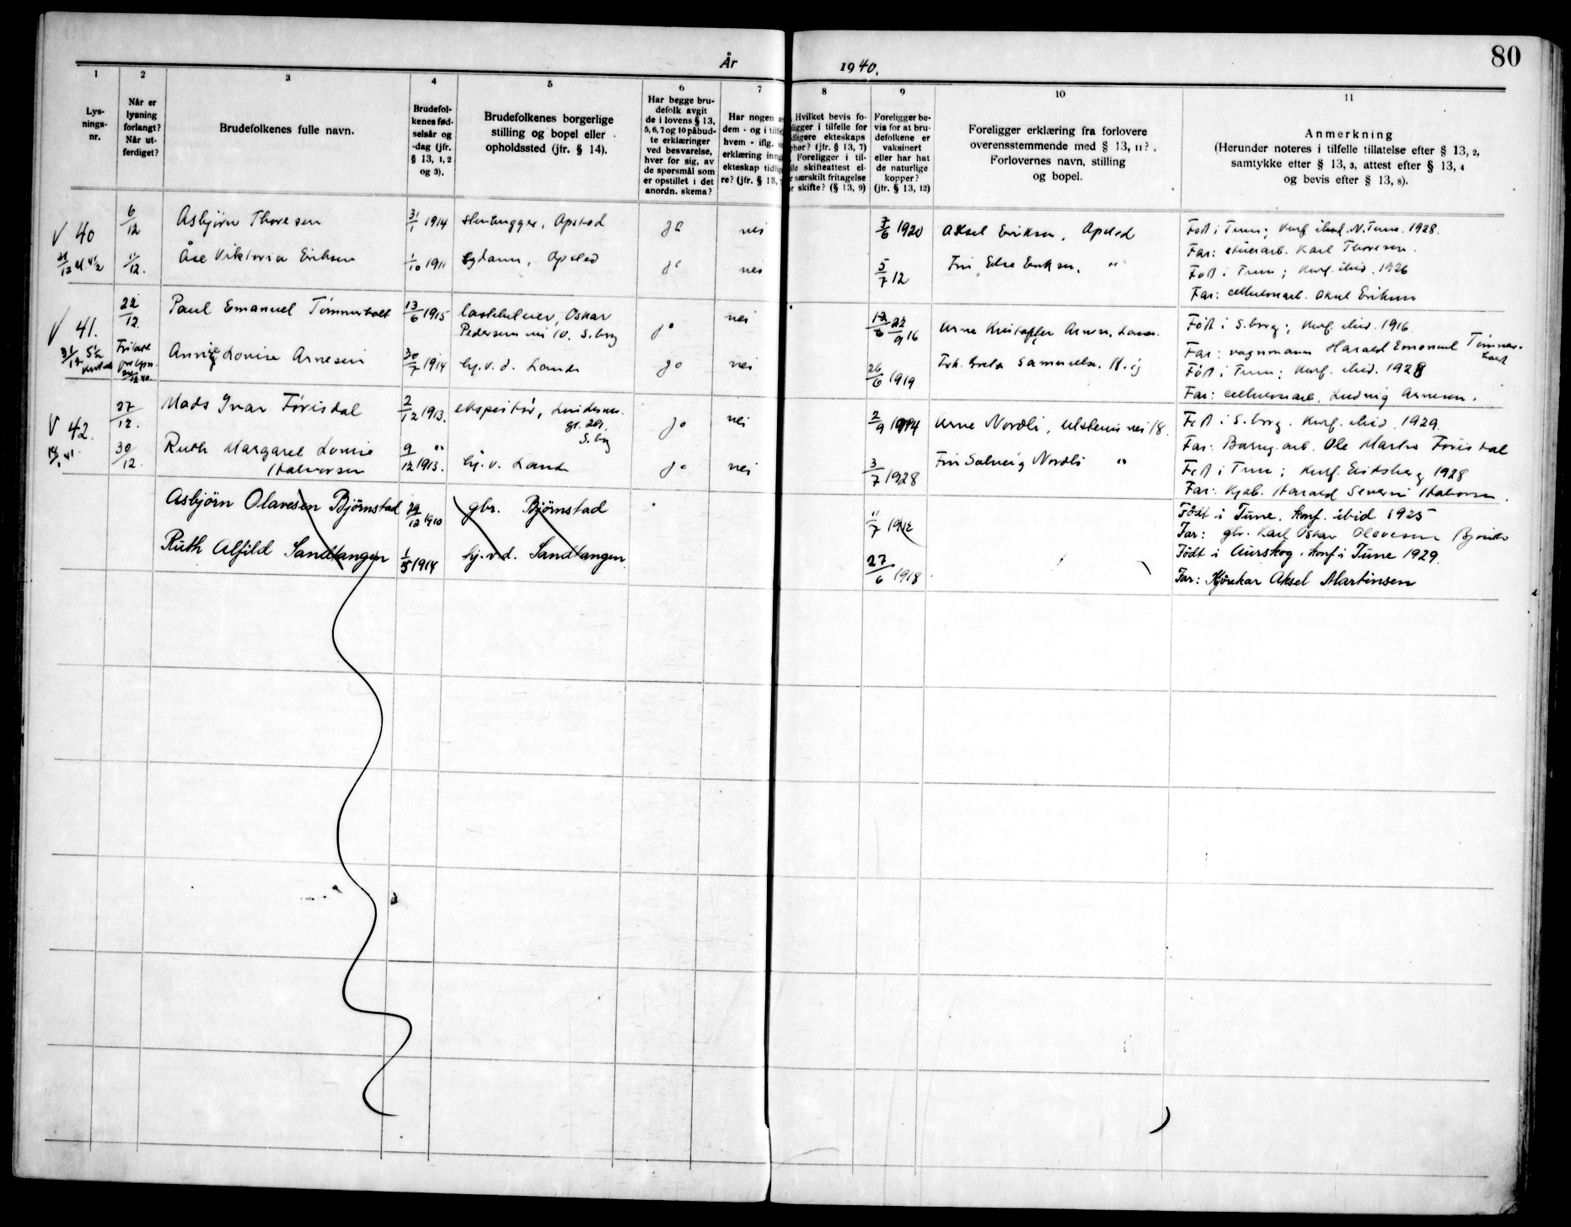 80
År 1940.
1 2 3 4 5 6 7 8 9 10 11
Lys-
nings-
nr.
Når er
lysning
forlangt?
Når ut-
ferdiget?
Brudefolkenes fulle navn.
Brudefol-
kenes fød-
selsår og
-dag (jfr.
§ 13, 1, 2
og 3).
Brudefolkenes borgerlige
stilling og bopel eller
opholdssted (jfr. § 14).
Har begge bru-
defolk avgit
de i lovens § 13,
5, 6, 7 og 10 påbud-
te erklæringer
ved besvarelse,
hver for sig, av
de spørsmål som
er opstillet i det
anordn. skema?
Har nogen a
dem - og i tilfe
hvem - iflg.
erklæring inng
ekteskap tidlig
re? (jfr. § 13,
Hvilket bevis fo-
ligger i tilfelle for
dligere ekteskaps
phør? (jfr. § 13, 7)
Foreligger i til-
lle skifteattest el-
særskilt fritagelse
r skifte? (§ 13, 9)
Foreligger be-
vis for at bru-
defolkene er
vaksinert
eller har hat
de naturlige
kopper?
(jfr. § 13, 12)
Foreligger erklæring fra forlovere
overensstemmende med § 13, 11?
Forlovernes navn, stilling
og bopel.
Anmerkning
(Herunder noteres i tilfelle tillatelse efter § 13, 2,
samtykke efter § 13, 3, attest efter § 13, 4
og bevis efter § 13, 8).
V 40 6/12 Asbjørn Thoresen 31/1 1914 stenhugger, Opstad ja nei 7/6 1920 Aksel Eriksen, Opstad Født i Tune; konf. ibid. N. Tune. 1928.
Far: stuerarb. Karl Thoresen.
11/12. Åse Viktoria Eriksen 1/10 1911 sydame, Opstad ja nei 5/7 12 Fru Elsa Eriksen, " Født i Tune; konf. ibid. 1926
Far: cellulosearb. Aksel Eriksen
V 41. 22/12. Paul Emanuel Tømmerholt 13/6 1915 lastebileier, Oskar
Pedersens vei 10. S.borg ja nei 22/9 16 Arne Kristoffer Arnesen, Lande. Født i S.borg; konf. ibid. 1916
Far: vognmann Harald Emanuel Tømmer-
holt
Annie Lovise Arnesen 30/7 1914 hj.v.d. Lande ja nei 26/6 1919 Frk. Greta Samuelsen. Født i Tune; konf. ibid. 1928
Far: cellulosearb. Ludvig Arnesen.
V 42. 27/12. Mads Ivar Førisdal 2/12 1913. ekspeditør,
gt. 29.
S.borg ja nei 2/9 1914 Arne Nordli, Født i S.borg. konf. ibid. 1929.
Far: Ole Martin Førisdal
30/12. Ruth Margaret Lovise
Halvorsen 9/12 1913. hj.v. Lande ja nei 3/7 1928 Fru Solveig Nordli " Født i Tune; konf. Eidsberg 1928
Far: Harald Severin Halvorsen.
Asbjørn Olavesen Bjørnstad 29/12 1910 gbr. Bjørnstad 11/7 1912 Født i Tune. konf. ibid 1925
Far: gbr. Karl Oskar Olavesen
Ruth Alfild Sandtangen 1/5 1914 hj.v.d. Sandtangen 27/6 1918 Født i Aurskog. konf. i Tune 1929.
Far: Kjørekar Aksel Martinsen